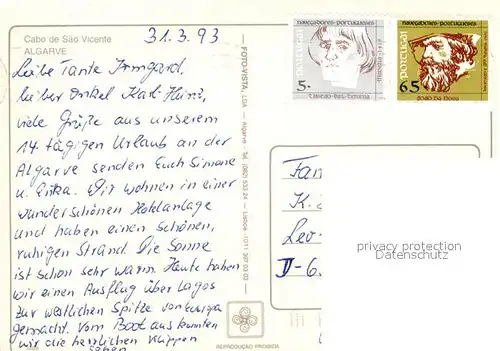 Cabo de São Vicente
ALGARVE
31.3.93
Liebe Tante Irmgard,
lieber Onkel Karl-Heinz,
viele Grüße aus unserem
14 tägigen Urlaub an der
Algarve senden Euch Simone
u. Erika. Wir wohnen in einer
wunderschönen Hotelanlage
und haben einen schönen,
ruhigen Strand. Die Sonne
ist schon sehr warm. Heute haben
wir einen Ausflug über Lagos
zur westlichen Spitze von Europa
gemacht. Vom Boot aus konnten
wir die herrlichen Klippen
sehen
FOTO-VISTA, LDA - Algarve - Tel. (082)
REPRODUÇÃO PROIBIDA
NAVEGADORES·PORTUGUESES
PORTUGAL
5.-
NAVEGADORES·PORTUGUESES
PORTUGAL
65.-
Fam
K.
Leo-
D-6.
privacy protection
Datenschutz